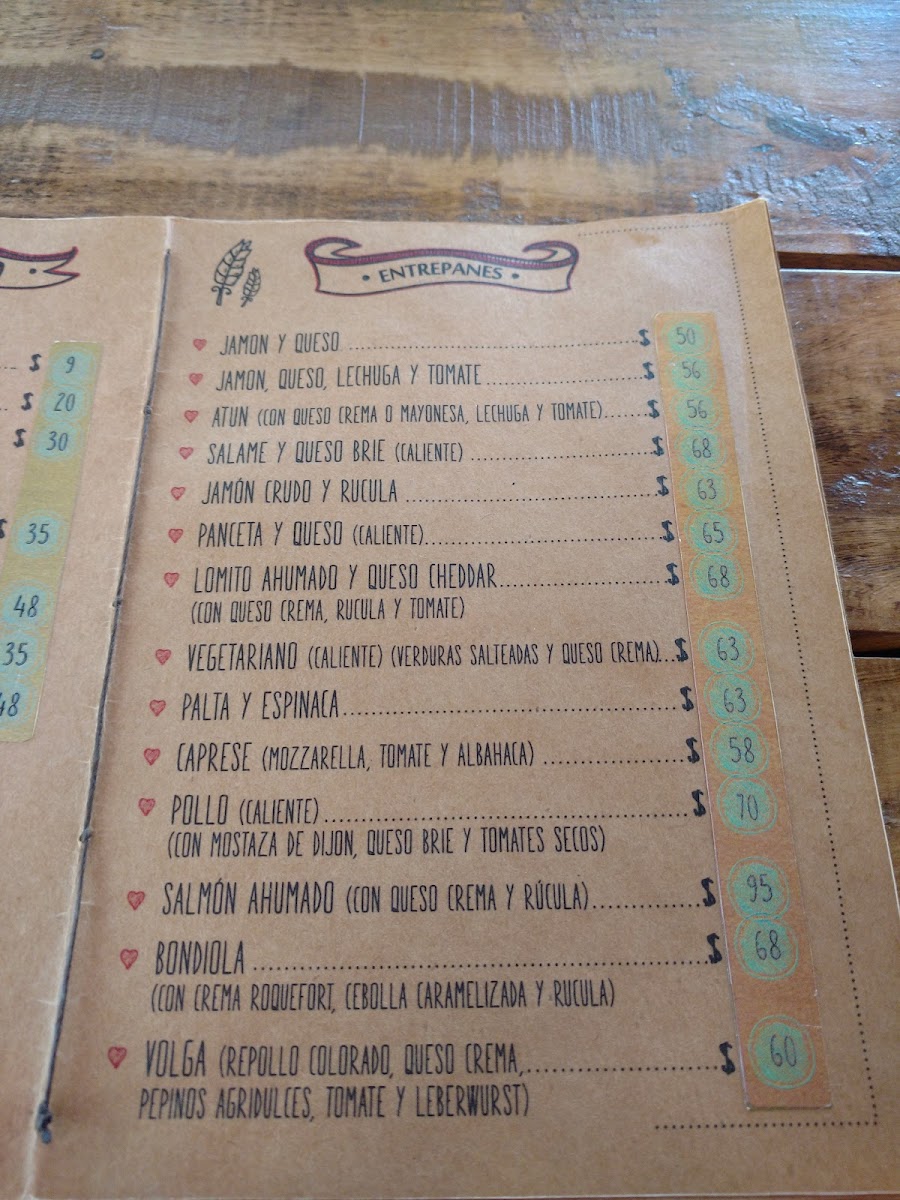 $ 9
$ 20
$ 30
$ 35
48
35
48
• ENTREPANES •
JAMON Y QUESO $ 50
JAMON, QUESO, LECHUGA Y TOMATE $ 56
ATUN (CON QUESO CREMA O MAYONESA, LECHUGA Y TOMATE) $ 56
SALAME Y QUESO BRIE (CALIENTE) $ 68
JAMÓN CRUDO Y RUCULA $ 63
PANCETA Y QUESO (CALIENTE) $ 65
LOMITO AHUMADO Y QUESO CHEDDAR $ 68
(CON QUESO CREMA, RUCULA Y TOMATE)
VEGETARIANO (CALIENTE) (VERDURAS SALTEADAS Y QUESO CREMA) $ 63
PALTA Y ESPINACA $ 63
CAPRESE (MOZZARELLA, TOMATE Y ALBAHACA) $ 58
POLLO (CALIENTE) $ 70
(CON MOSTAZA DE DIJON, QUESO BRIE Y TOMATES SECOS)
SALMÓN AHUMADO (CON QUESO CREMA Y RÚCULA) $ 95
BONDIOLA $ 68
(CON CREMA ROQUEFORT, CEBOLLA CARAMELIZADA Y RUCULA)
VOLGA (REPOLLO COLORADO, QUESO CREMA, $ 60
PEPINOS AGRIDULCES, TOMATE Y LEBERWURST)